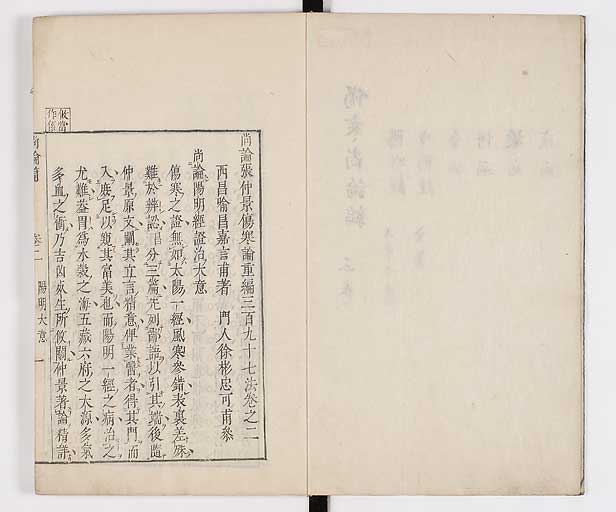 尚論張仲景傷寒論重編三百九十七法卷之二
西昌喻昌嘉言甫著　門人徐彬忠可甫叅
尚論陽明經證治大意
傷寒之證無如太陽一經風寒參錯表裏差殊
難於辨認昌分三篇先列鄙語以引其端後隨
仲景原文闡其立言精意俾業醫者得其門而
入庶足以窺其富美也而陽明一經之病治之
尤難葢胃為水穀之海五藏六府之大源多氣
多血之衝乃吉凶死生所攸關仲景著論精詳
尚論篇
卷二
陽明大意
一
攸當
作係